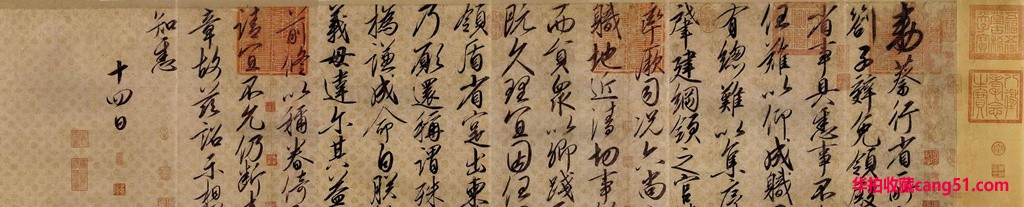 敕蔡行省所
劄子辭免領殿
省事具悉事不
任難以仰成職
有總難以集序
肇建綱領之官
率厥司況六尚
職地近清切事
而員眾以卿踐
既久理宜因任
領盾省寔出柬
乃願還稱謂殊
撝謙成命自朕
義毋違爾其益
前修以稱眷倚
請宜不允仍斷來
章故茲詔示想
知悉
十四日
华拍收藏cang51.com